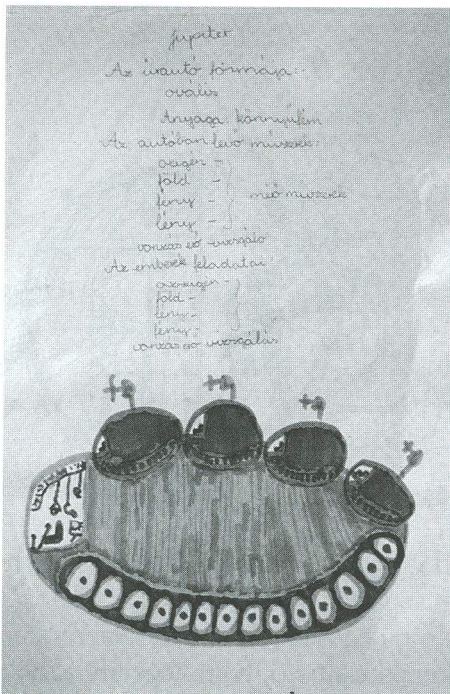 Jupiter
Az űrautó formája:
ovális
Anyaga: könnyűfém
Az autóban levő műszerek:
oxigén -
föld -
fény -
lény -
mérő műszerek
vonzás erő vizsgáló
Az emberek feladatai:
föld -
lény -
fény -
vonzás erő vizsgálás